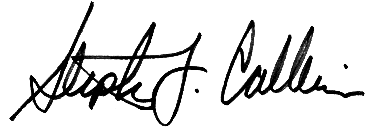 Stephen J. Collins